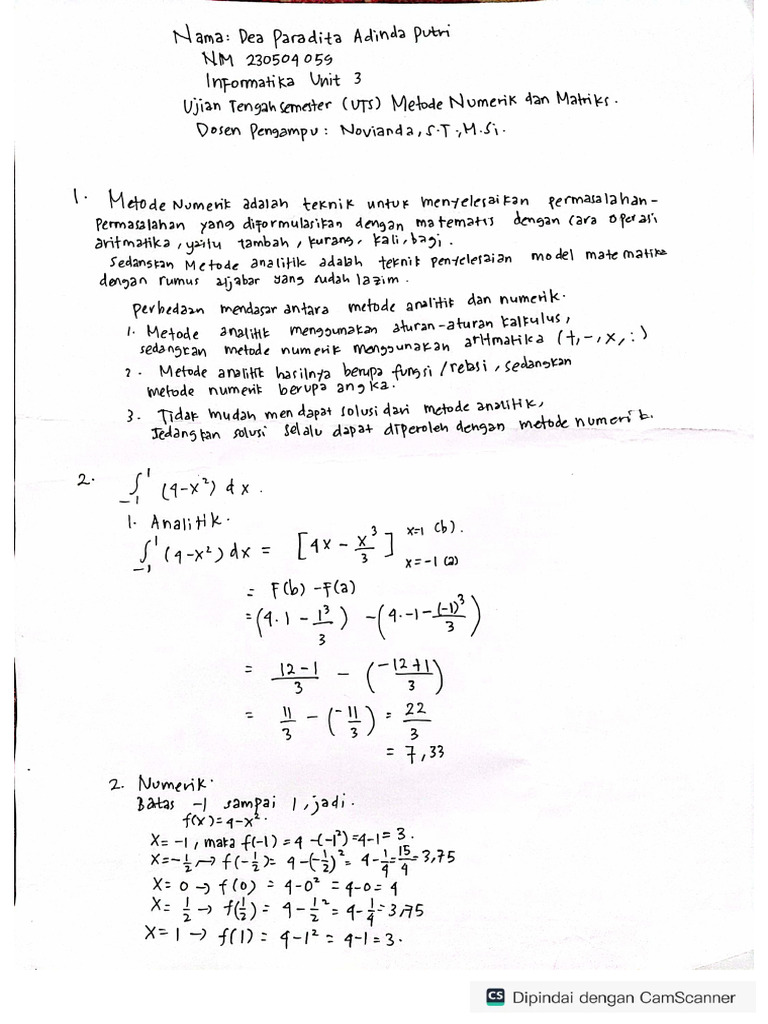 Nama: Dea Paradita Adinda Putri
NM 230504059
Informatika Unit 3
Ujian Tengah semester (UTS) Metode Numerik dan Matriks.
Dosen Pengampu: Novianda, S.T., M.Si.
1. Metode Numerik adalah teknik untuk menyelesaikan permasalahan-
Permasalahan yang diformulasikan dengan matematis dengan cara operasi
aritmatika, yaitu tambah, kurang, kali, bagi.
Sedangkan Metode analitik adalah teknik penyelesaian model matematika
dengan rumus aljabar yang sudah lazim.
perbedaan mendasar antara metode analitik dan numerik.
1. Metode analitik menggunakan aturan-aturan kalkulus,
sedangkan metode numerik menggunakan aritmatika (+,-,x,:)
2. Metode analitik hasilnya berupa fungsi/relasi, sedangkan
metode numerik berupa angka.
3. Tidak mudah mendapat solusi dari metode analitik,
sedangkan solusi selalu dapat diperoleh dengan metode numerik.
2. ∫₋₁¹ (4-x²) dx.
1. Analitik.
∫₋₁¹ (4-x²) dx = [4x - x³/3] x=1 (b). x=-1 (a)
= F(b) - F(a)
= (4.1 - 1³/3) - (4.-1 - (-1)³/3)
= 12-1/3 - (-12+1/3)
= 11/3 - (-11/3) = 22/3
= 7,33
2. Numerik.
Batas -1 sampai 1, jadi.
f(x) = 4-x².
X = -1, maka f(-1) = 4 -(-1²) = 4-1 = 3.
X = -1/2 → f(-1/2) = 4-(-1/2)² = 4-1/4 = 15/4 = 3,75
X = 0 → f(0) = 4-0² = 4-0 = 4
X = 1/2 → f(1/2) = 4-1/2² = 4-1/4 = 3,75
X = 1 → f(1) = 4-1² = 4-1 = 3.
CS Dipindai dengan CamScanner